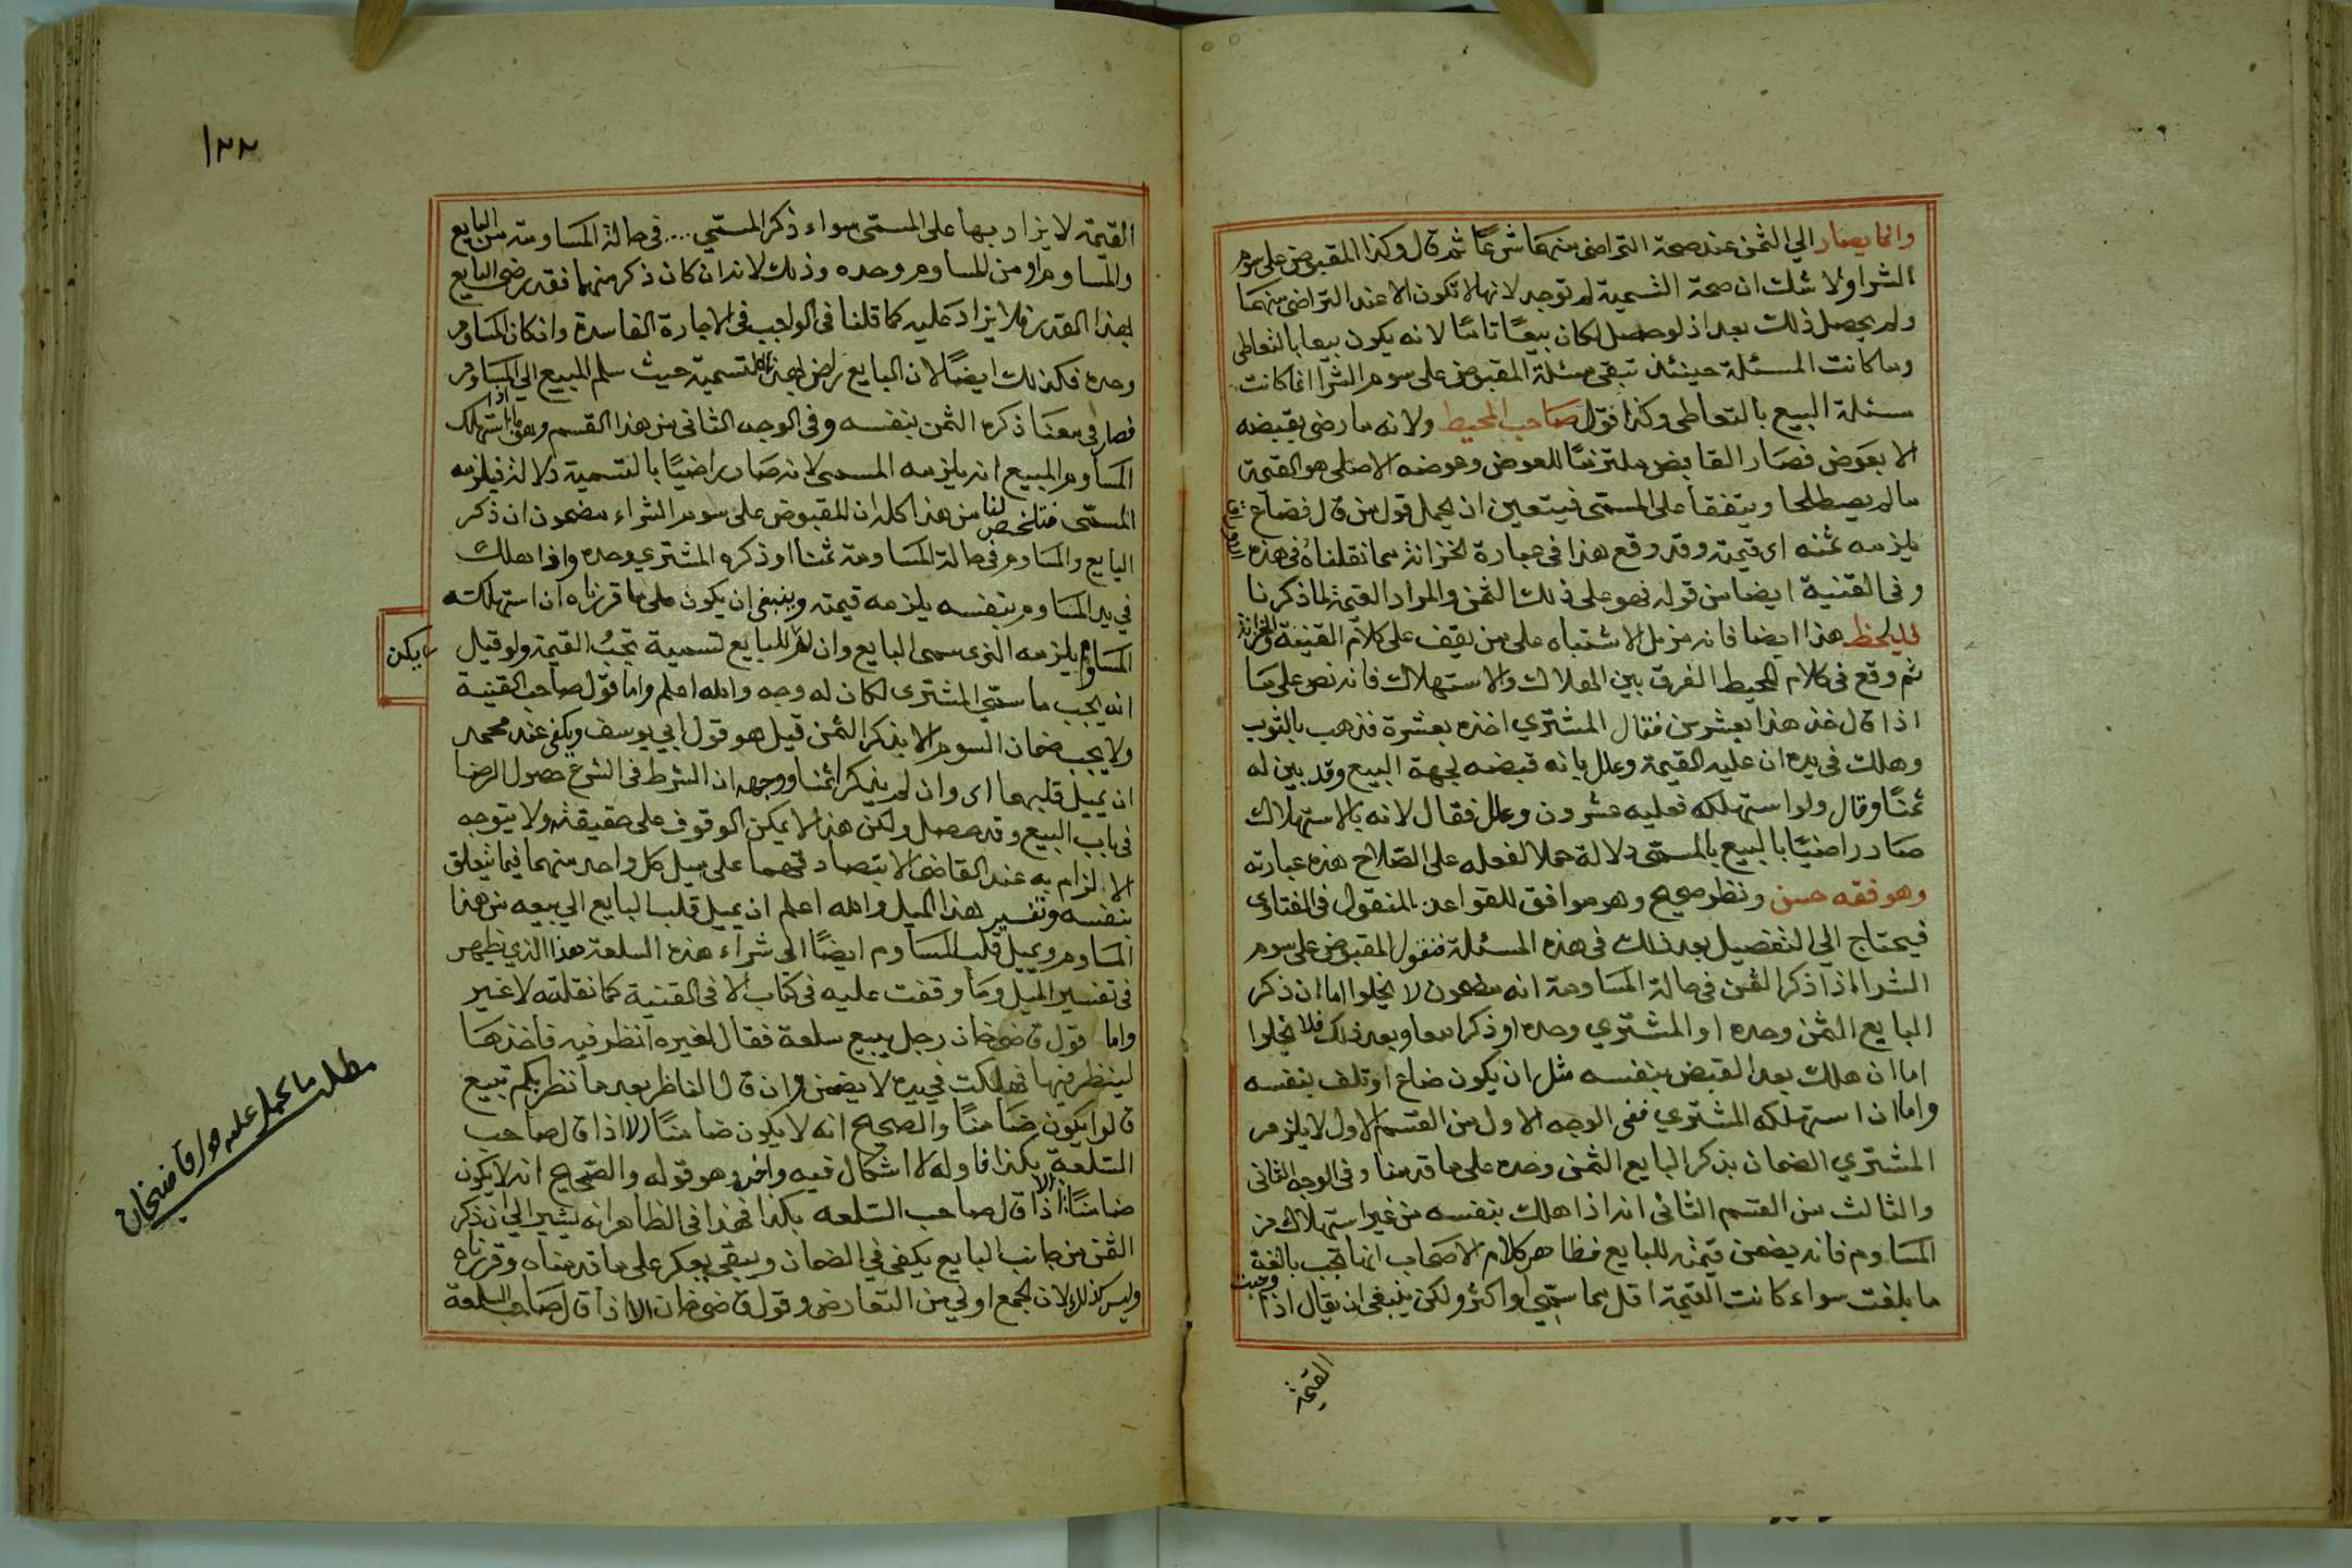 وانما يصار الي الثمن عند صحة التراضى منهما شرعًا ثم قال وكذا المقبوض على سوم
الشراء ولا شك ان صحة التسمية لم توجد لانها لا تكون الا عند التراضى منهما
ولم يحصل ذلك بعد اذ لو حصل لكان بيعًا تامًا لانه يكون بيعا بالتعاطى
وما كانت المسئلة حينئذ تبقى مسئلة المقبوض على سوم الشرا انما كانت
مسئلة البيع بالتعاطى وكذا قول صاحب المحيط ولانه ما رضى بقبضه
الا بعوض فصار القابض ملتزمًا للعوض وعوضه الاصلى هو القيمة
ما لم يصطلحا ويتفقا على المسمى فيتعين ان يحمل قول من قال فضاع
يلزمه ثمنه اى قيمته وقد وقع هذا فى عبارة الخزانة مما نقلناه فى هذه
وفى القنية ايضا من قوله فهو على ذلك الثمن والمراد القيمة لما ذكرنا
فليلحظ هذا ايضا فانه مزيل الاشتباه على من يقف على كلام القنية والخزانة
ثم وقع فى كلام المحيط الفرق بين الهلاك والاستهلاك فانه نص على ما
اذا قال خذ هذا بعشرين فقال المشترى اخذه بعشرة فذهب بالثوب
وهلك فى يده ان عليه القيمة وعلل بانه قبضه لجهة البيع وقد بين له
ثمنًا وقال ولو استهلكه فعليه عشرون وعلل فقال لانه بالاستهلاك
صار راضيًا بالبيع بالمسمى دلالة حملا لفعله على الصلاح هذه عبارته
وهو فقه حسن ونظر صحيح وهو موافق للقواعد المنقول فى الفتاوى
فيحتاج الي التفصيل بعد ذلك فى هذه المسئلة فنقول المقبوض على سوم
الشراء اذا ذكر الثمن فى حالة المساومة انه مضمون لا يخلوا اما ان ذكر
البايع الثمن وحده او المشتري وحده او ذكرا معا وبعد ذلك فلا يخلوا
اما ان هلك بعد القبض بنفسه مثل ان يكون ضاع او تلف بنفسه
واما ان استهلكه المشتري ففى الوجه الاول من القسم الاول لا يلزم
المشتري الضمان بذكر البايع الثمن وحده على ما قدمنا وفى الوجه الثانى
والثالث من القسم الثانى انه اذا هلك بنفسه من غير استهلاك من
المساوم فانه يضمن قيمته للبايع فظاهر كلام الاصحاب انها تجب بالغة
ما بلغت سواء كانت القيمة اقل مما سمي او اكثر ولكن ينبغى ان يقال اذا وجبت
القيمة
١٢٢
القيمة لا يزاد بها على المسمى سواء ذكر المسمي .... فى حالة المساومة من البايع
والمساوم او من المساوم وحده وذلك لانه ان كان ذكر منهما فقد رضى البايع
بهذا القدر فلا يزاد عليه كما قلنا فى الواجب فى الاجارة الفاسدة وان كان المساوم
وحده فكذلك ايضًا لان البايع راض بهذه التسمية حيث سلم المبيع الي المساوم
فصار فى معنا ذكره الثمن بنفسه وفى الوجه الثانى من هذا القسم وهو ما اذا استهلك
المساوم المبيع انه يلزمه المسمى لانه صار راضيًا بالتسمية دلالة فيلزمه
المسمى فتلخص لنا من هذا كله ان المقبوض على سوم الشراء مضمون ان ذكر
البايع والمساوم فى حالة المساومة ثمنا او ذكره المشتري وحده واذا هلك
في يد المساوم بنفسه يلزمه قيمته وينبغى ان يكون على ما قررناه ان استهلكه
المساوم يلزمه الذى سمى البايع وان لم للبايع تسمية تجبُ القيمة ولو قيل
يكن
انه يجب ما سمي المشترى لكان له وجه والله اعلم واما قول صاحب القنية
ولا يجب ضمان السوم الا بذكر الثمن قيل هو قول ابي يوسف ويكفى عند محمد
ان يميل قلبهما اى وان لم يذكرا ثمنا ووجهه ان الشرط فى الشرع حصول الرضا
فى باب البيع وقد حصل ولكن هذا لا يمكن الوقوف على حقيقته ولا يتوجه
الالزام به عند القاضى الا بتصادقهما على ميل كل واحد منهما فيما يتعلق
بنفسه وتفسير هذا الميل والله اعلم ان يميل قلب البايع الى بيعه من هذا
المساوم ويميل قلب المساوم ايضًا الى شراء هذه السلعة هذا الذي يظهر
فى تفسير الميل وما وقفت عليه فى كتاب الا فى القنية كما نقلته لا غير
واما قول قاضى خان رجل يبيع سلعة فقال لغيره انظر فيه فاخذها
لينظر فيها فهلكت في يده لا يضمن وان قال الناظر بعد ما نظر بكم تبيع
قالوا يكون ضامنًا والصحيح انه لا يكون ضامنًا الا اذا قال صاحب
السلعة بكذا فاوله لا اشكال فيه واخره وهو قوله والصحيح انه لا يكون
ضامنًا الا اذا قال صاحب السلعه بكذا فهذا فى الظاهر انه يشير الي ان ذكر
الثمن من جانب البايع يكفى في الضمان ويبقى يعكر على ما قدمناه وقررناه
وليس كذلك لان الجمع اولي من التعارض وقول قاضى خان الا اذا قال صاحب السلعة
مطلب ما يحمل عليه قول قاضيخان